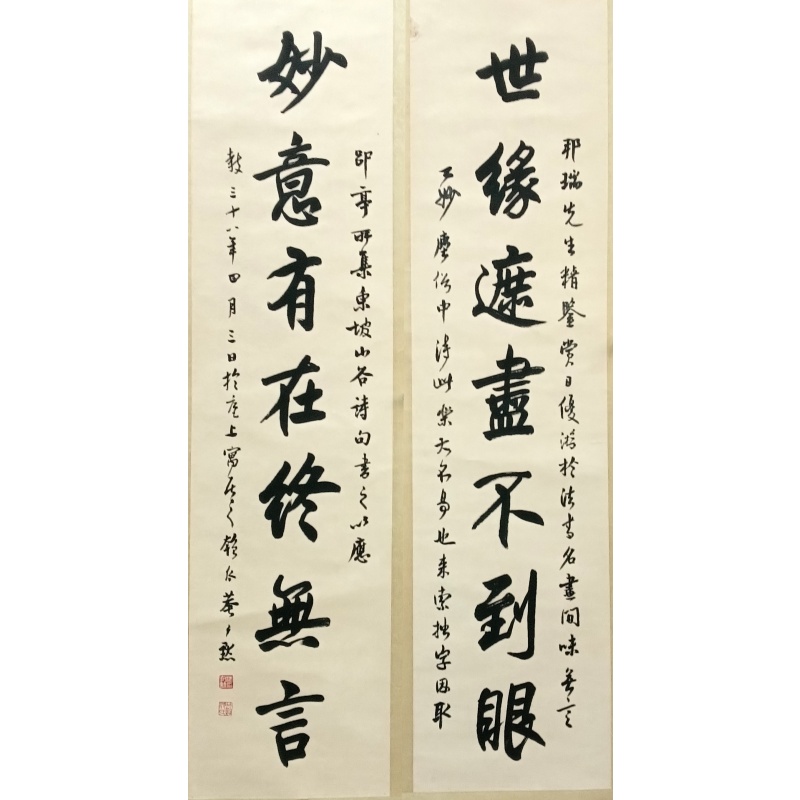 邢瑞先生精鑒賞日優游於法書名畫間味無言
世緣遮盡不到眼
之妙塵俗中得此樂大不易也來索拙字因取
郘亭所集東坡山谷詩句書之以應
妙意有在終無言
教三十八年四月三日於滬上寓居之菴尹默